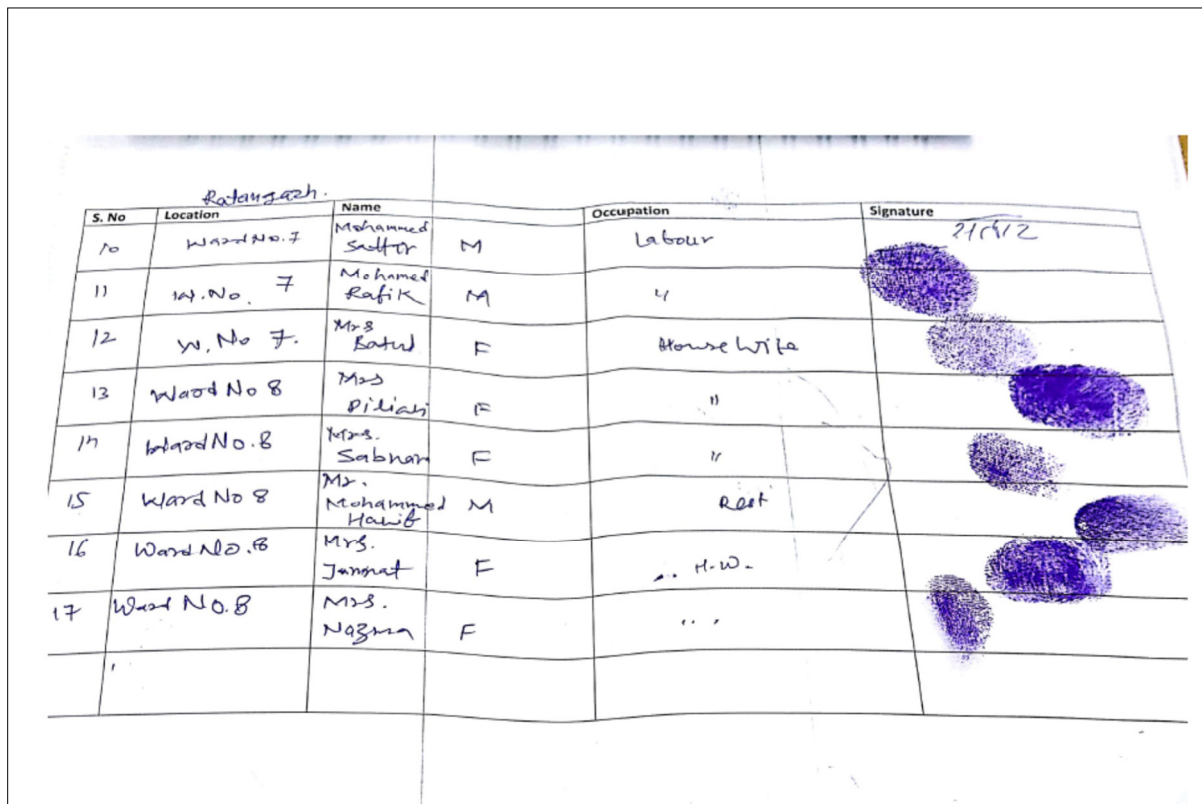 Ratangarh.
S. No Location Name Occupation Signature
10 Ward No. 7 Mohammed
Sattar M Labour
11 W. No. 7 Mohamed
Rafik M "
12 W. No 7. Mrs
Batul F House Wife
13 Ward No 8 Mrs
F "
14 Ward No. 8 Mrs.
F "
15 Ward No 8 Mr.
Mohammed
Hanif M Rest
16 Ward No. 8 Mrs.
Jannat F H.W.
17 Ward No. 8 Mrs.
Nazma F